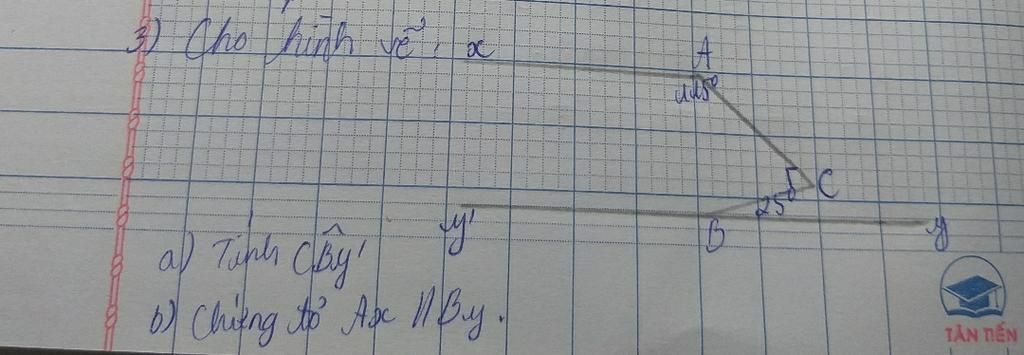 3) Cho hình vẽ: x A
115°
C
25°
y' B y
a) Tính CB̂y'
b) Chứng tỏ Ax // By.
TÂN TIẾN